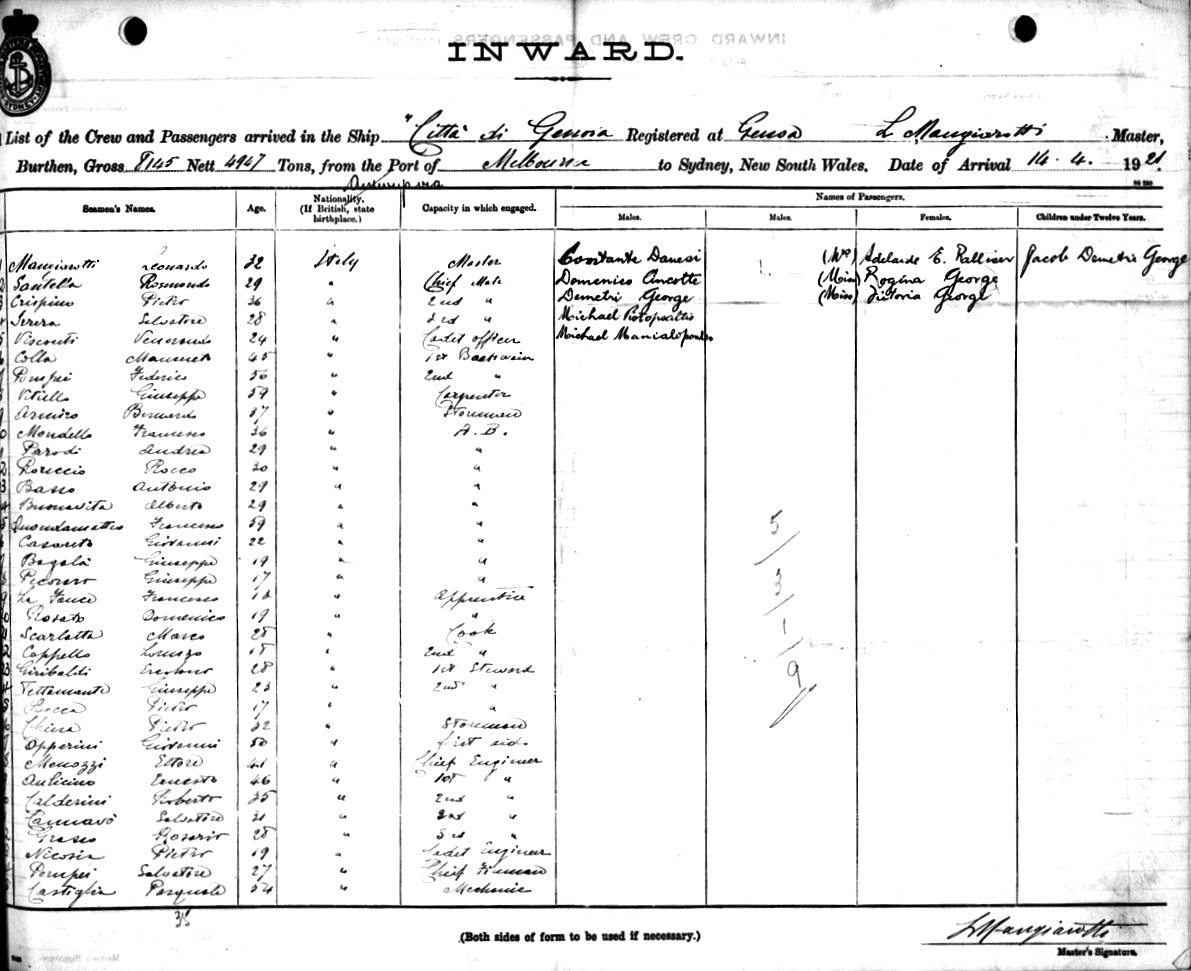 INWARD.
List of the Crew and Passengers arrived in the Ship "Città di Genova Registered at Genoa L Mangiarotti Master,
Burthen, Gross 8145 Nett 4947 Tons, from the Port of Melbourne to Sydney, New South Wales. Date of Arrival 14 . 4 . 1921.
Antwerp via
Seamen's Names. Age. Nationality. (If British, state birthplace.) Capacity in which engaged. Names of Passengers.
Males. Males. Females. Children under Twelve Years.
Mangiarotti Leonardo 32 Italy Master Costante Danesi (Mrs) Adelaide E. Palliser Jacob Demetri George
Santella Rosmondo 29 " Chief Mate Domenico Ancotte (Miss) Rogina George
Crispino Pietro 36 " 2nd " Demetri George (Miss) Victoria George
Salvatore 28 " 3rd " Michael
Visconti 24 " Cadet officer Michael
Colla 45 " 1st Boatswain
Pompei Federico 50 " 2nd "
Vitiello Giuseppe 59 " Carpenter
Armiro Bernardo 37 " Storeman
Mondello Francesco 36 " A.B.
Parodi Andrea 29 " "
Rocco 30 " "
Basso Antonio 29 " "
Buonavita Alberto 29 " "
Francesco 59 " "
Casareto Giovanni 22 " "
Bagalà Giuseppe 19 " "
Giuseppe 17 " "
La Fauce Francesco " Apprentice
Rosato Domenico 19 " "
Scarlatta Marco 28 " Cook
Cappello Lorenzo 18 " 2nd "
Giribaldi 28 " 1st Steward
Tettamante Giuseppe 23 " 2nd "
Rocca Pietro 17 " "
Pietro 32 " Storeman
Opperini Giovanni 50 " first aid
Menozzi Ettore 41 " Chief Engineer
Anticino Ernesto 46 " 1st "
Calderini Roberto 35 " 2nd "
Cannavò Salvatore 31 " 2nd "
Grasso Rosario 28 " 3rd "
Nicosia Pietro 19 " Cadet Engineer
Pompei Salvatore 27 " Chief Fireman
Castiglia Pasquale 54 " Mechanic
5
3
1
9
35
(Both sides of form to be used if necessary.)
L Mangiarotti
Master's Signature.